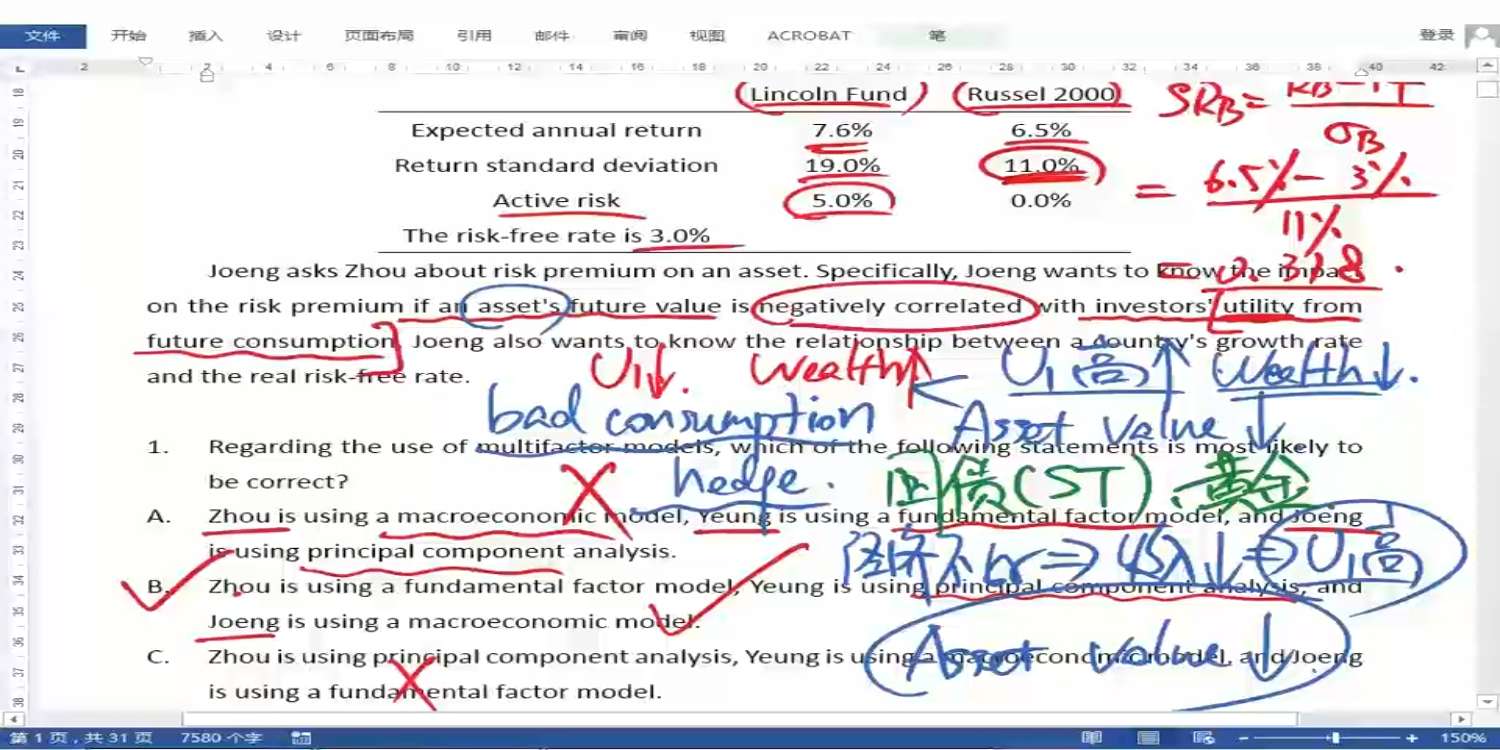 文件 开始 插入 设计 页面布局 引用 邮件 审阅 视图 ACROBAT 笔 登录
2 2 4 6 8 10 12 14 16 18 20 22 24 26 28 30 32 34 36 38 40 42
Lincoln Fund Russel 2000 SRB=
σB
Expected annual return 7.6% 6.5%
Return standard deviation 19.0% 11.0%
= 6.5%-3%
Active risk 5.0% 0.0%
11%
The risk-free rate is 3.0%
= 0.318
Joeng asks Zhou about risk premium on an asset. Specifically, Joeng wants to know the impact
on the risk premium if an asset's future value is negatively correlated with investors' utility from
future consumption. Joeng also wants to know the relationship between a country's growth rate
and the real risk-free rate.
U1↓. Wealth↑ ← U1高↑ Wealth↓.
bad consumption Asset value ↓
1. Regarding the use of multifactor models, which of the following statements is most likely to
be correct?
hedge. 国债(ST)、黄金
A. Zhou is using a macroeconomic model, Yeung is using a fundamental factor model, and Joeng
is using principal component analysis.
经济不好⇒收入↓⇒U1高
B. Zhou is using a fundamental factor model, Yeung is using principal component analysis, and
Joeng is using a macroeconomic model.
Asset value ↓
C. Zhou is using principal component analysis, Yeung is using a macroeconomic model, and Joeng
is using a fundamental factor model.
第 1 页，共 31 页 7580 个字 150%